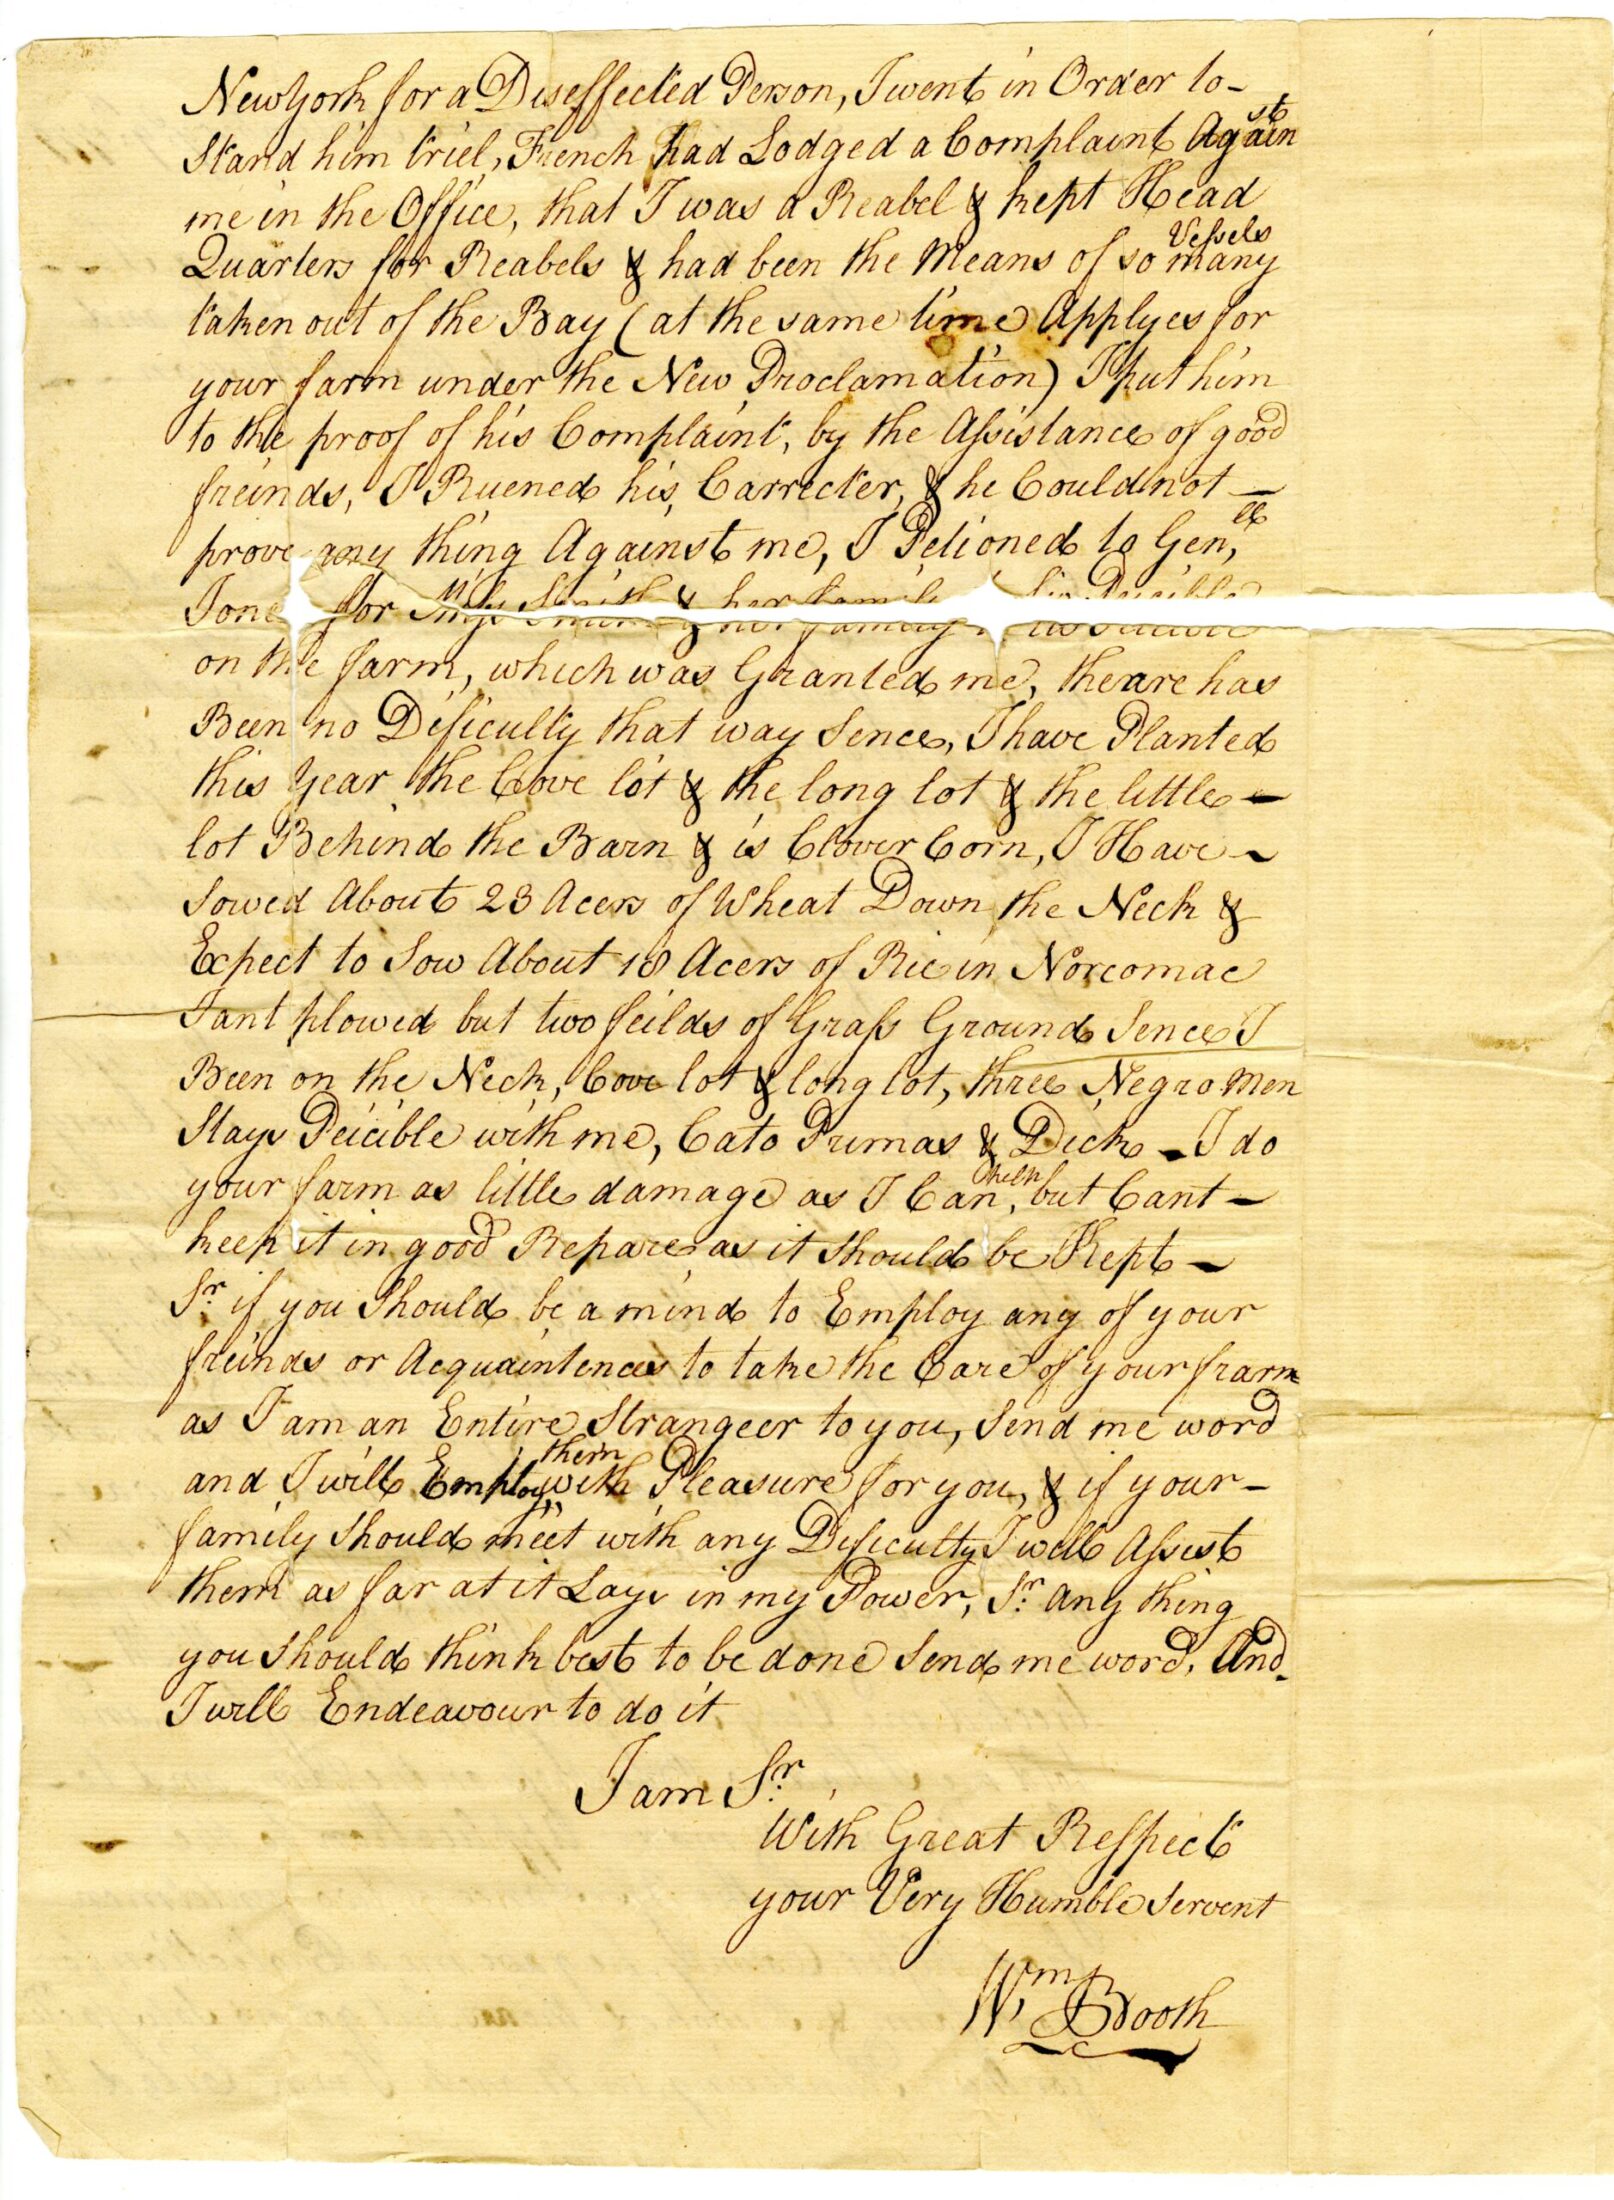 NewYork for a Diseffected Person, I went in Order to -
Stand him triel, French had Lodged a Complaint Again st
me in the Office, that I was a Reabel & kept Head
Quarters for Reabels & had been the Means of so many Vessels
taken out of the Bay (at the same time Applyes for
your farm under the New Proclamation) I put him
to the proof of his Complaint, by the Assistance of good
freinds, I Ruened his Carrecter, & he Could not —
prove any thing Against me, I Petioned to Gen, ll
Jone for Mrs Smith & her family to live Peicible
on the farm, which was Granted me, theare has
Been no Dificulty that way Sence, I have Planted
this Year the Cove lot & the long lot & the little —
lot Behind the Barn & is Clover Corn, I Have -
Sowed About 23 Acers of Wheat Down the Neck &
Expect to Sow About 18 Acers of Rie in Norcomac
I ant plowed but two feilds of Grass Ground Sence I
Been on the Neck, Cove lot & long lot, three Negro Men
Stays Peicible with me, Cato Primas & Dick - I do
your farm as little damage as I Can help, but Cant -
keep it in good Repare as it Should be Kept -
Sr. if you Should be a mind to Employ any of your
freinds or Acquaintences to take the Care of your frarm
as I am an Entire Strangeer to you, Send me word
and I will Employ them with Pleasure for you, & if your -
family Should meet with any Dificulty I will Assist
them as far at it Lays in my Power, Sr. any thing
you Should think best to be done Send me word, And
I will Endeavour to do it
I am Sr.
With Great Respect
your Very Humble Servent
Wm Booth